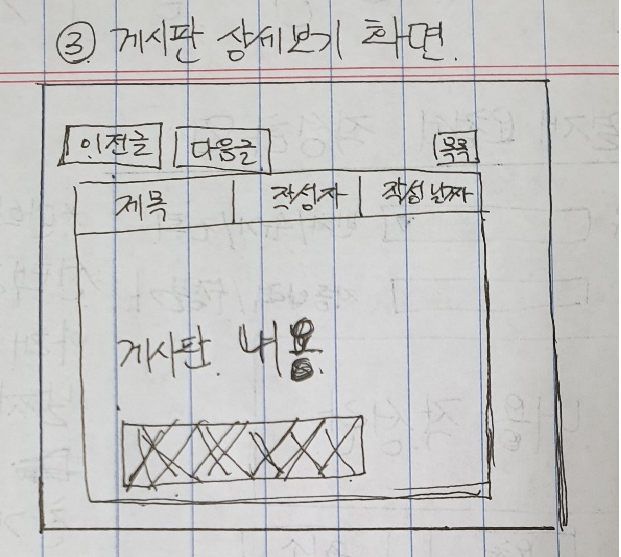 ③ 게시판 상세보기 화면.
이전글 다음글 목록
제목 작성자 작성날짜
게시판 내용